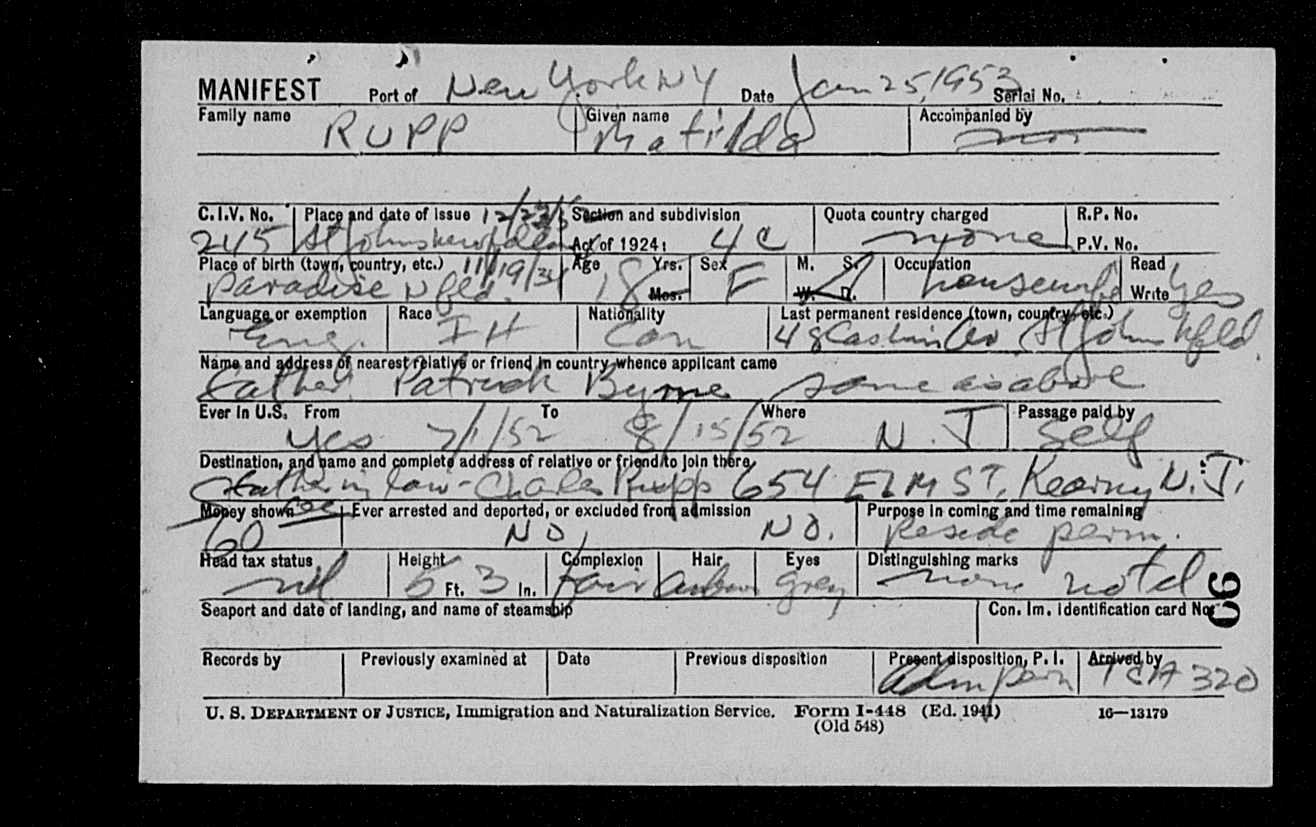 MANIFEST Port of New York NY Date Jan 25, 1953 Serial No.
Family name Given name Accompanied by
RUPP Matilda
C.I.V. No. Place and date of issue 12/23/5 Section and subdivision Quota country charged R.P. No.
245 St Johns Act of 1924: 4 C none P.V. No.
Place of birth (town, country, etc.) 11/19/34 Age Yrs. Sex M. S. Occupation Read
Paradise Nfld. 18 Mos. F W. D. housewife Write Yes
Language or exemption Race Nationality Last permanent residence (town, country, etc.)
Eng. IH Can 48 Cashin Av St John Nfld.
Name and address of nearest relative or friend in country whence applicant came
Father Patrick Byrne same as above
Ever in U.S. From To Where Passage paid by
Yes 7/1/52 8/15/52 N.J Self
Destination, and name and complete address of relative or friend to join there
Father in law - Charles Rupp 654 ELM ST, Kearny N.J.
Money shown Ever arrested and deported, or excluded from admission Purpose in coming and time remaining
60 NO, NO. Reside perm.
Head tax status Height Complexion Hair Eyes Distinguishing marks
nil 5 Ft. 3 In. Fair Auburn Grey none noted
Seaport and date of landing, and name of steamship Con. Im. Identification card No.
Records by Previously examined at Date Previous disposition Present disposition, P. I. Arrived by
Adm perm TCA 320
U. S. DEPARTMENT OF JUSTICE, Immigration and Naturalization Service. Form I-448 (Ed. 1941) 16—13179
(Old 548)